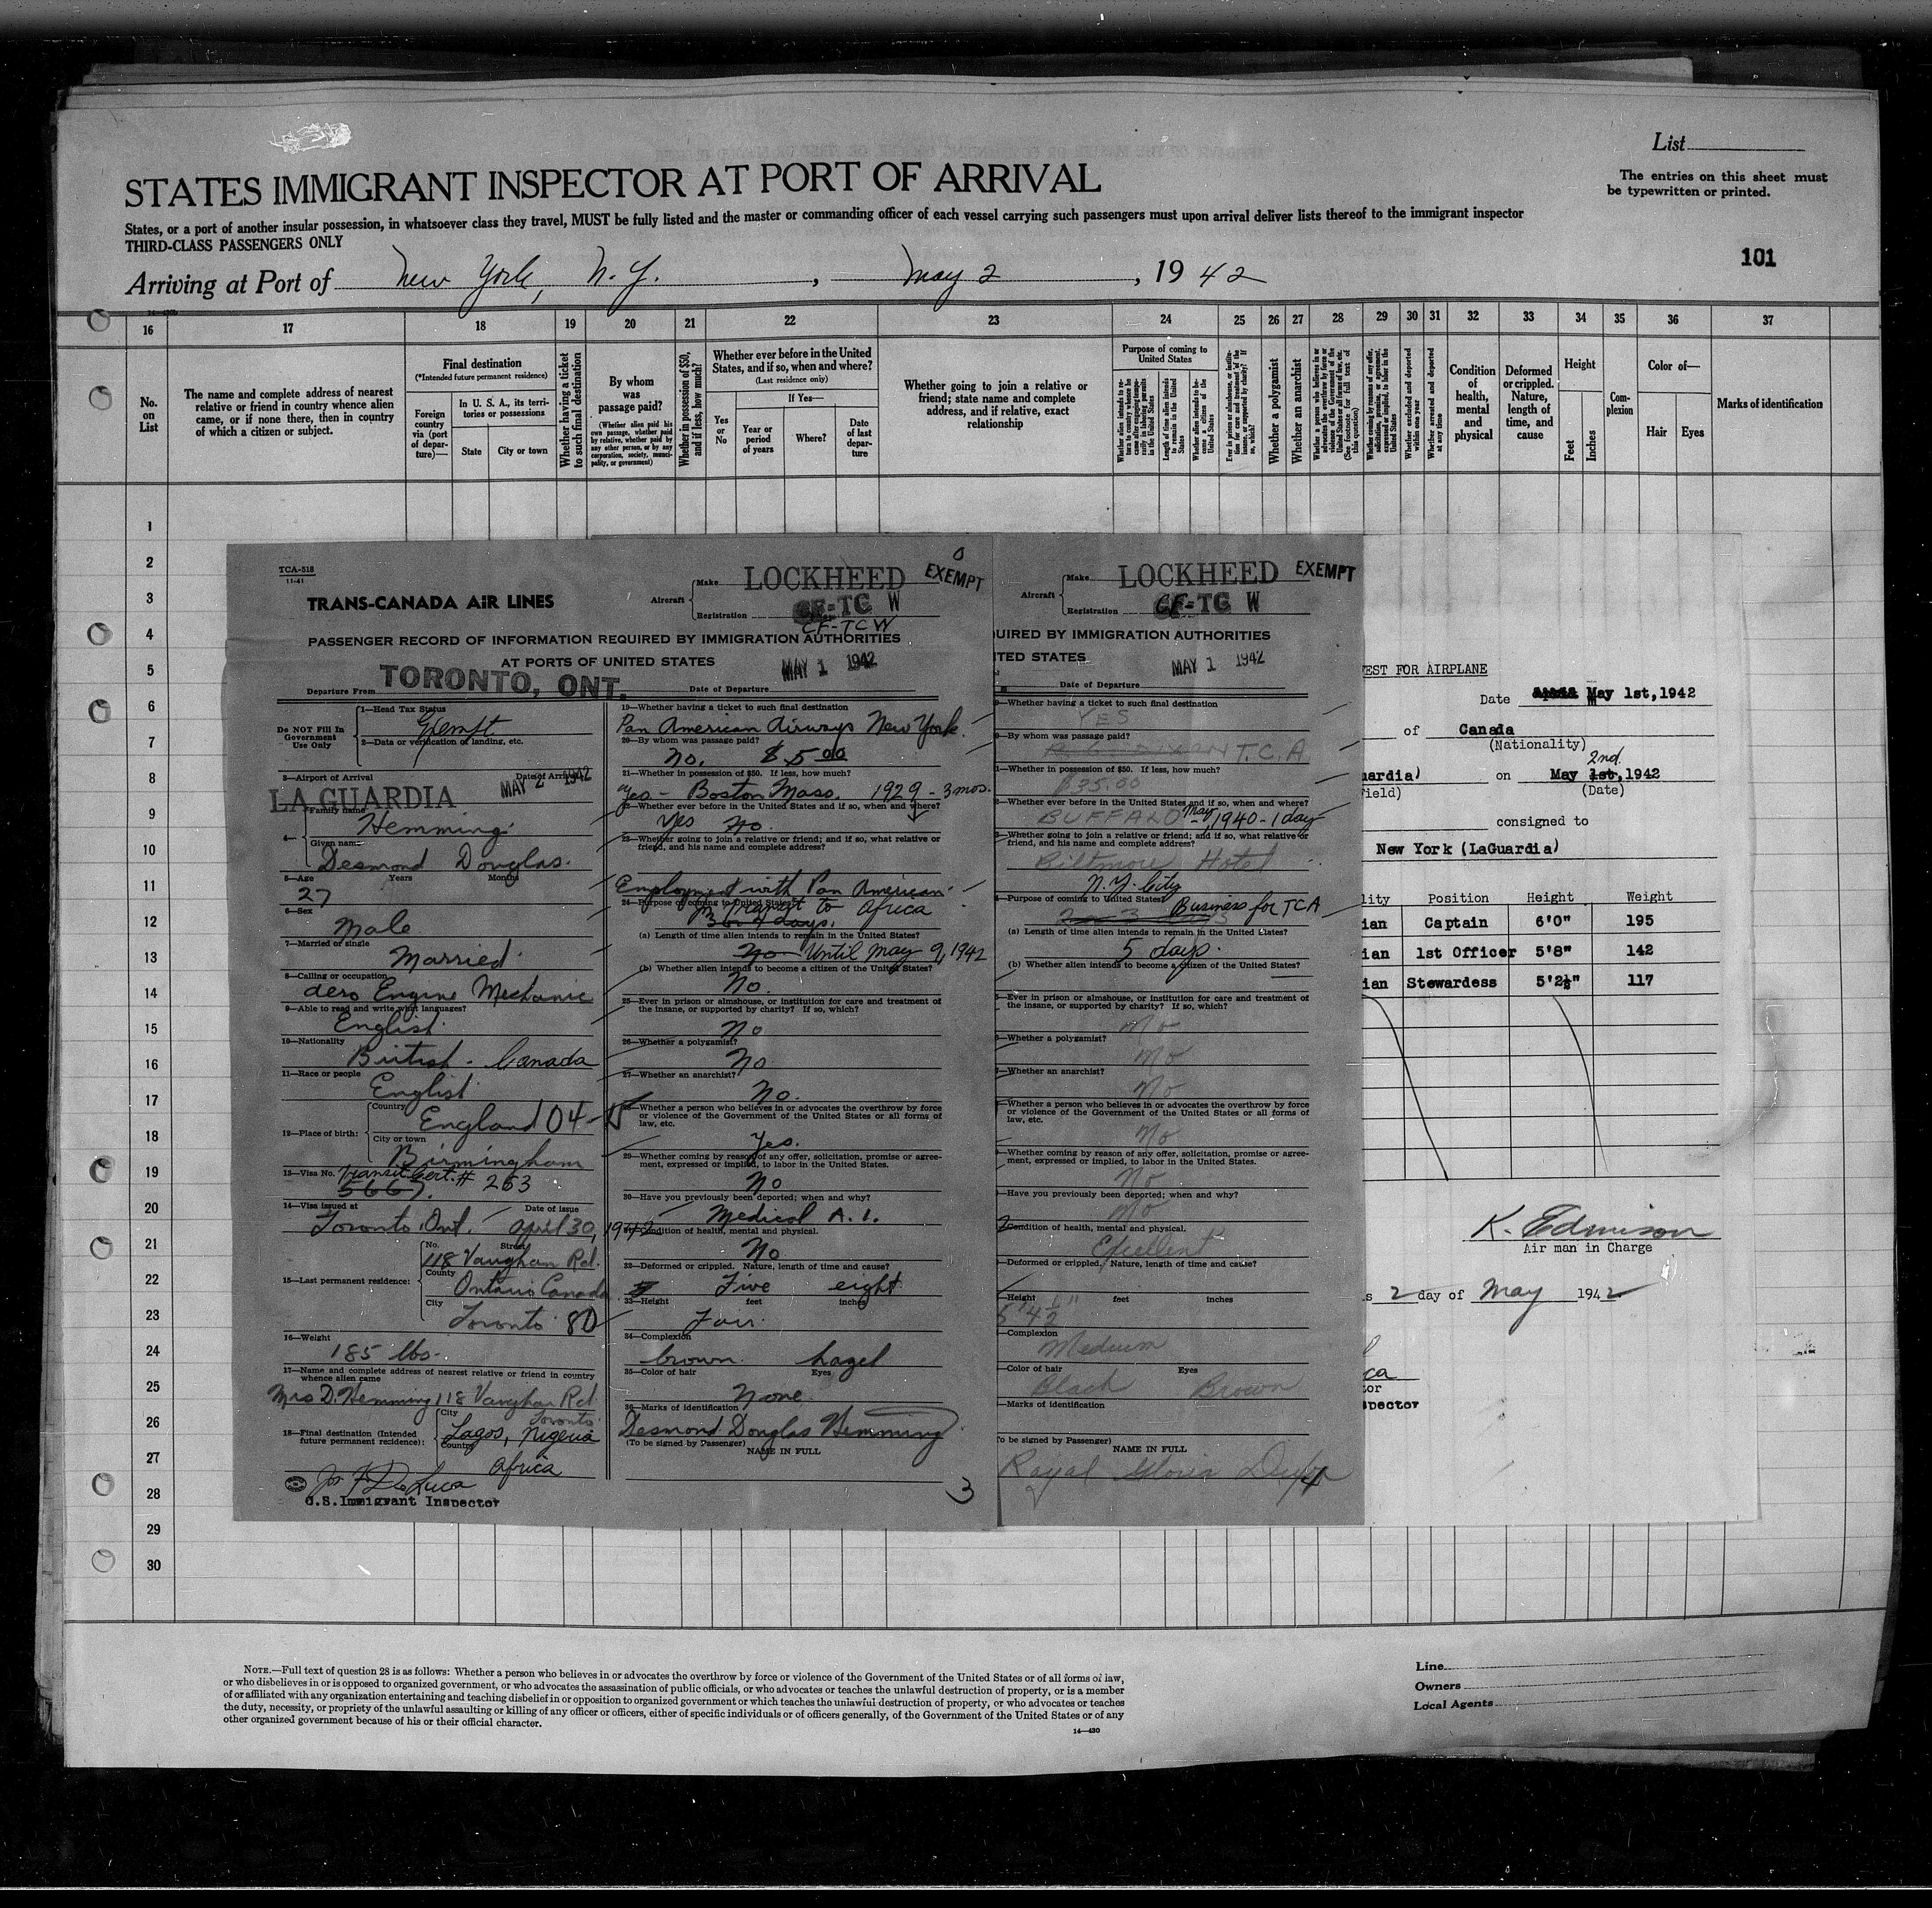 List
The entries on this sheet must
be typewritten or printed.
STATES IMMIGRANT INSPECTOR AT PORT OF ARRIVAL
States, or a port of another insular possession, in whatsoever class they travel, MUST be fully listed and the master or commanding officer of each vessel carrying such passengers must upon arrival deliver lists thereof to the immigrant inspector
THIRD-CLASS PASSENGERS ONLY
101
Arriving at Port of New York, N.Y. , May 2 , 1942
16 17 18 19 20 21 22 23 24 25 26 27 28 29 30 31 32 33 34 35 36 37
No. on List
The name and complete address of nearest
relative or friend in country whence alien
came, or if none there, then in country
of which a citizen or subject.
Final destination
(*Intended future permanent residence)
Foreign country via (port of departure)—
In U. S. A., its territories or possessions
State
City or town
Whether having a ticket to such final destination
By whom was passage paid?
(Whether alien paid his own passage, whether paid by relative, whether paid by any other person, or by any corporation, society, municipality, or government)
Whether in possession of $50, and if less, how much?
Whether ever before in the United States, and if so, when and where?
(Last residence only)
Yes or No
If Yes—
Year or period of years
Where?
Date of last departure
Whether going to join a relative or
friend; state name and complete
address, and if relative, exact
relationship
Purpose of coming to United States
Length of time alien intends to remain in the United States
Whether alien intends to become a citizen of the United States
Whether a polygamist
Whether an anarchist
Whether excluded and deported within one year
Whether arrested and deported at any time
Condition of health, mental and physical
Deformed or crippled. Nature, length of time, and cause
Height
Feet
Inches
Complexion
Color of—
Hair
Eyes
Marks of identification
1
2
3
4
5
6
7
8
9
10
11
12
13
14
15
16
17
18
19
20
21
22
23
24
25
26
27
28
29
30
TCA-518
11-41
TRANS-CANADA AIR LINES
Aircraft
Make LOCKHEED
EXEMPT
Registration CF-TC W
CF-TCW
PASSENGER RECORD OF INFORMATION REQUIRED BY IMMIGRATION AUTHORITIES
AT PORTS OF UNITED STATES
Departure From TORONTO, ONT.
Date of Departure MAY 1 1942
Do NOT Fill In
Government
Use Only
1—Head Tax Status
Exempt
2—Data or verification of landing, etc.
3—Airport of Arrival
Date of Arrival
LA GUARDIA
MAY 2 1942
4—
Family name
Hemming
Given name
Desmond Douglas.
5—Age
Years
Months
27
6—Sex
Male
7—Married or single
Married
8—Calling or occupation
Aero Engine Mechanic
9—Able to read and write what languages?
English
10—Nationality
British - Canada
11—Race or people
English
12—Place of birth:
Country
England 04-
City or town
Birmingham
13—Visa No. Transit Cert. # 263
5667.
14—Visa issued at
Date of issue
Toronto, Ont. April 30, 1942
15—Last permanent residence:
No.
Street
118 Vaughan Rd.
County
Ontario Canada
City
Toronto 80
16—Weight
185 lbs.
17—Name and complete address of nearest relative or friend in country
whence alien came
Mrs D. Hemming 118 Vaughan Rd
Toronto
18—Final destination (Intended
future permanent residence):
City
Lagos, Nigeria
Country
Africa
U.S. Immigrant Inspector
19—Whether having a ticket to such final destination
Pan American Airways New York.
20—By whom was passage paid?
No. $5.00
21—Whether in possession of $50. If less, how much?
Yes - Boston Mass. 1929 - 3 mos.
22—Whether ever before in the United States and if so, when and where?
Yes No.
23—Whether going to join a relative or friend; and if so, what relative or
friend, and his name and complete address?
Employment with Pan American
24—Purpose of coming to United States?
Transit to Africa
3 or 4 days.
(a) Length of time alien intends to remain in the United States?
No Until May 9, 1942
(b) Whether alien intends to become a citizen of the United States?
No.
25—Ever in prison or almshouse, or institution for care and treatment of
the insane, or supported by charity? If so, which?
No
26—Whether a polygamist?
No
27—Whether an anarchist?
No.
Whether a person who believes in or advocates the overthrow by force
or violence of the Government of the United States or all forms of
law, etc.
Yes.
29—Whether coming by reason of any offer, solicitation, promise or agree-
ment, expressed or implied, to labor in the United States.
No
30—Have you previously been deported; when and why?
Medical A.1.
Condition of health, mental and physical.
No
32—Deformed or crippled. Nature, length of time and cause?
Five eight
33—Height
feet
inches
Fair.
34—Complexion
brown hazel
35—Color of hair
Eyes
None
36—Marks of identification
Desmond Douglas Hemming
(To be signed by Passenger)
NAME IN FULL
3
Aircraft
Make LOCKHEED
EXEMPT
Registration CF-TC W
UIRED BY IMMIGRATION AUTHORITIES
ITED STATES
MAY 1 1942
Date of Departure
Whether having a ticket to such final destination
YES
By whom was passage paid?
T.C.A
Whether in possession of $50. If less, how much?
$35.00
Whether ever before in the United States and if so, when and where?
BUFFALO May, 1940 - 1 day
Whether going to join a relative or friend; and if so, what relative or
friend, and his name and complete address?
Biltmore Hotel
N.Y. City
Purpose of coming to United States?
Business for TCA
(a) Length of time alien intends to remain in the United States?
5 days.
(b) Whether alien intends to become a citizen of the United States?
Ever in prison or almshouse, or institution for care and treatment of
the insane, or supported by charity? If so, which?
No
Whether a polygamist?
No
Whether an anarchist?
No
Whether a person who believes in or advocates the overthrow by force
or violence of the Government of the United States or all forms of
law, etc.
No
Whether coming by reason of any offer, solicitation, promise or agree-
ment, expressed or implied, to labor in the United States.
No
Have you previously been deported; when and why?
No
Condition of health, mental and physical.
Excellent
Deformed or crippled. Nature, length of time and cause?
Height
feet
inches
5' 4½"
Complexion
Medium
Color of hair
Eyes
Black Brown
Marks of identification
To be signed by Passenger)
NAME IN FULL
EST FOR AIRPLANE
Date May 1st,1942
of Canada
(Nationality)
2nd.
uardia) on May 1st,1942
ield) (Date)
consigned to
New York (LaGuardia)
lity Position Height Weight
ian Captain 6'0" 195
ian 1st Officer 5'8" 142
ian Stewardess 5'2½" 117
K. Edmison
Air man in Charge
s 2 day of May 1942
ca
tor
spector
NOTE.—Full text of question 28 is as follows: Whether a person who believes in or advocates the overthrow by force or violence of the Government of the United States or of all forms of law,
or who disbelieves in or is opposed to organized government, or who advocates the assassination of public officials, or who advocates or teaches the unlawful destruction of property, or is a member
of or affiliated with any organization entertaining and teaching disbelief in or opposition to organized government or which teaches the unlawful destruction of property, or who advocates or teaches
the duty, necessity, or propriety of the unlawful assaulting or killing of any officer or officers, either of specific individuals or of officers generally, of the Government of the United States or of any
other organized government because of his or their official character.
14—430
Line
Owners
Local Agents